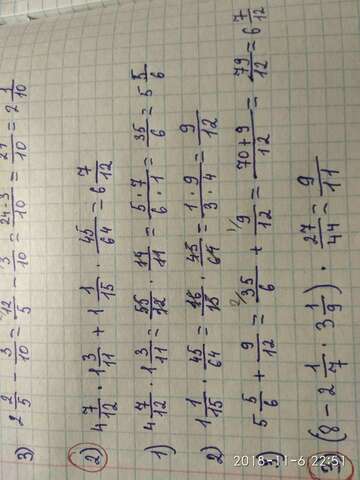 3) 2 2/5 - 3/10 = 12/5 - 3/10 = 24-3/10 = 21/10 = 2 1/10
2) 4 7/12 · 1 3/11 + 1 1/15 · 45/64 = 6 7/12
1) 4 7/12 · 1 3/11 = 55/12 · 14/11 = 5·7/6·1 = 35/6 = 5 5/6
2) 1 1/15 · 45/64 = 16/15 · 45/64 = 1·9/3·4 = 9/12
5 5/6 + 9/12 = 35/6 + 9/12 = 70+9/12 = 79/12 = 6 7/12
3) (8 - 2 1/7 · 3 1/9) · 27/44 = 9/11
2018-11-6 22:51